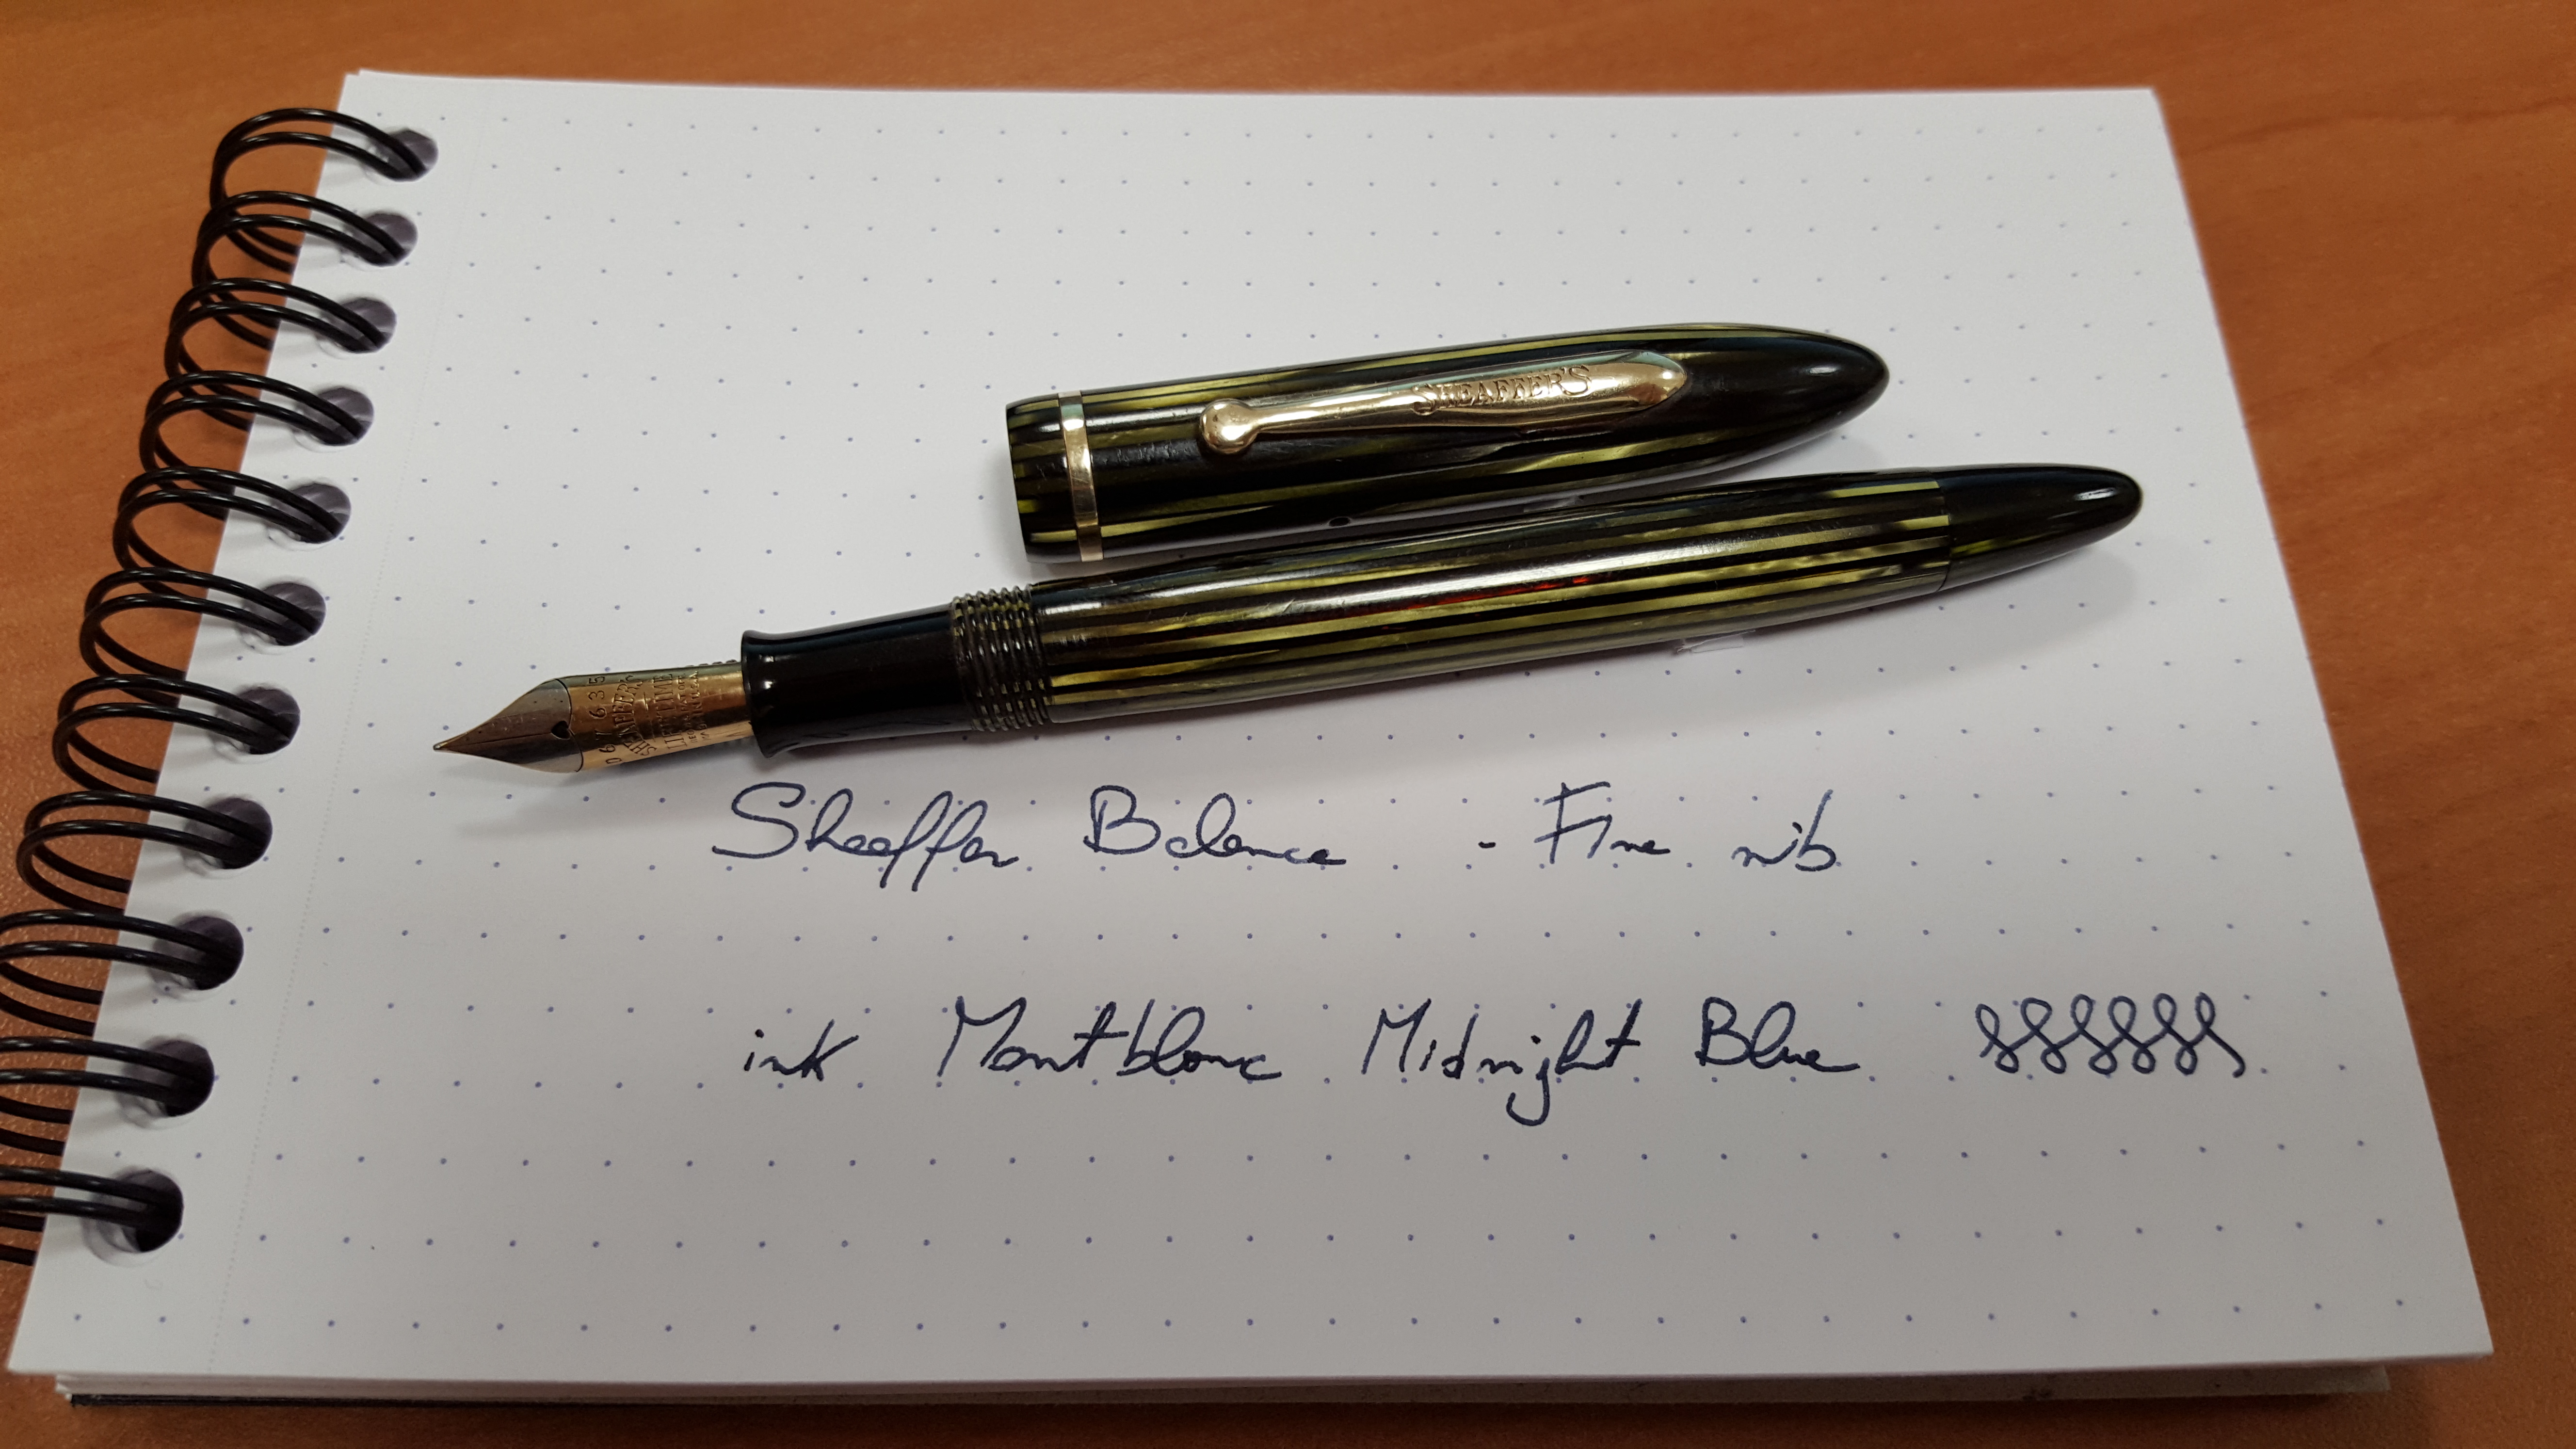 SHEAFFER'S
SHEAFFER'S
LIFETIME
Sheaffer Balance - Fine nib
ink Montblanc Midnight Blue